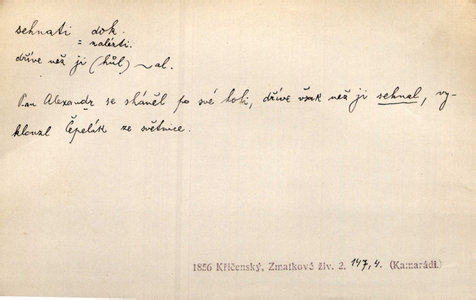 sehnati dok.
= nalézti.
dříve než ji (hůl) ~al.
Pan Alexandr se sháněl po své holi, dříve však než ji sehnal, vy-
klouzl Čepelík ze světnice.
1856 Křičenský, Zmatkové živ. 2. 147,4. (Kamarádi.)